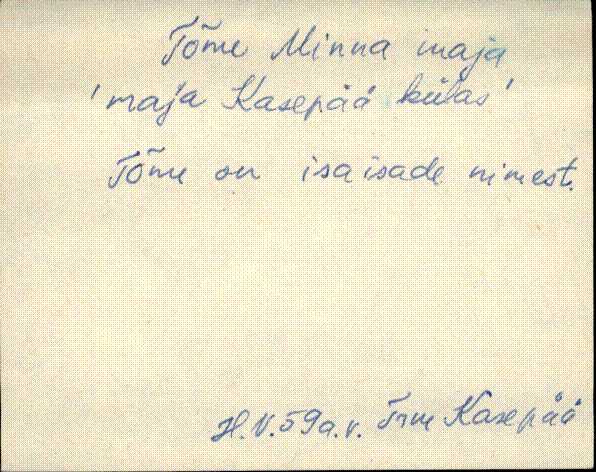 Tõme Minna maja
'maja Kasepää külas'
Tõme on isaisade nimest.
H.V. 59 a.v. Trm Kasepää